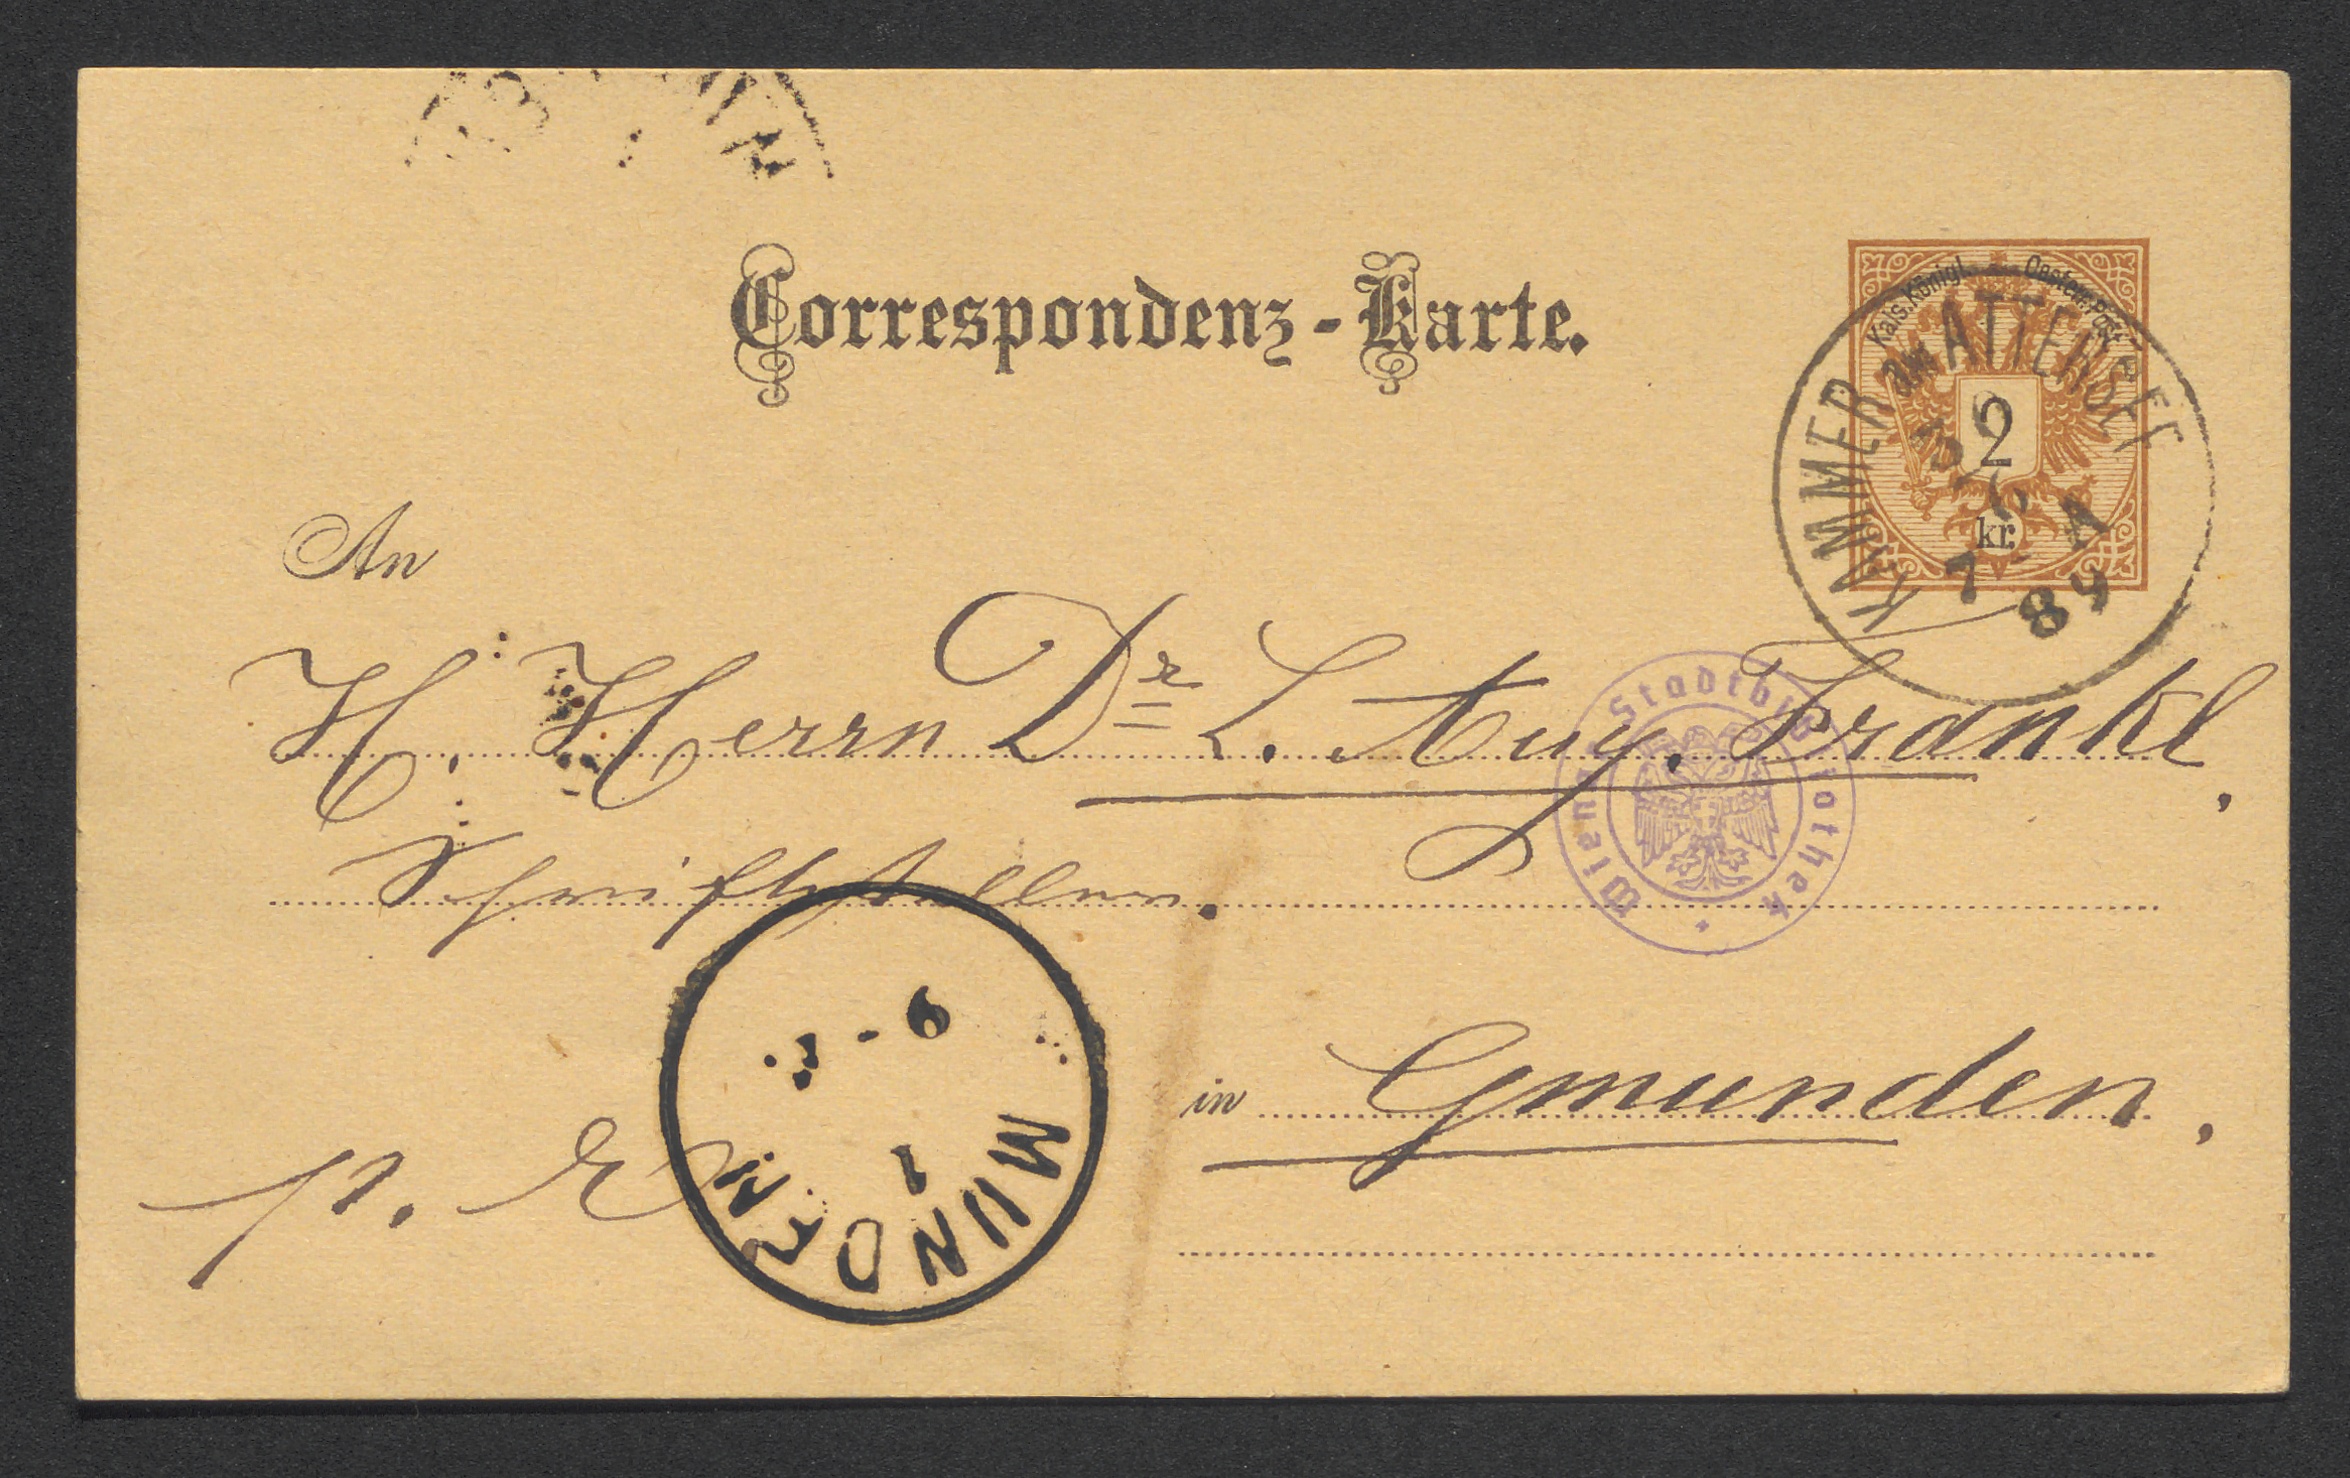 Correspondenz-Karte.
Kais. Königl. Oesterr. Post
2
kr.
KAMMER am ATTERSEE
30
7
89
An
H. Herrn Dr L. Aug. Frankl,
Schriftsteller.
Wiener Stadtbibliothek
in Gmunden.
p. E
9 - 
1